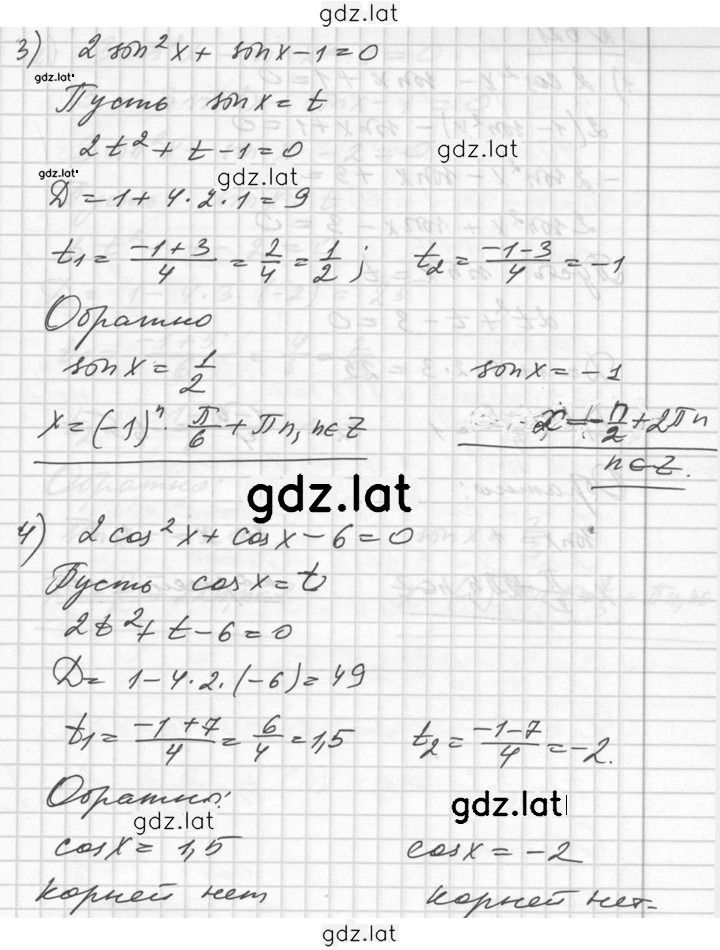 gdz.lat
3) 2 sin²x + sin x − 1 = 0
gdz.lat
Пусть sin x = t
2t² + t − 1 = 0
gdz.lat
gdz.lat
D = 1 + 4 · 2 · 1 = 9
t₁ = (−1+3)/4 = 2/4 = 1/2 ; t₂ = (−1−3)/4 = −1
Обратно
sin x = 1/2 sin x = −1
x = (−1)ⁿ · π/6 + πn, n∈Z x = −π/2 + 2πn
n∈Z.
gdz.lat
4) 2 cos²x + cos x − 6 = 0
Пусть cos x = t
2t² + t − 6 = 0
D = 1 − 4 · 2 · (−6) = 49
t₁ = (−1+7)/4 = 6/4 = 1,5 t₂ = (−1−7)/4 = −2.
Обратно:
gdz.lat
gdz.lat
cos x = 1,5 cos x = −2
корней нет корней нет.
gdz.lat